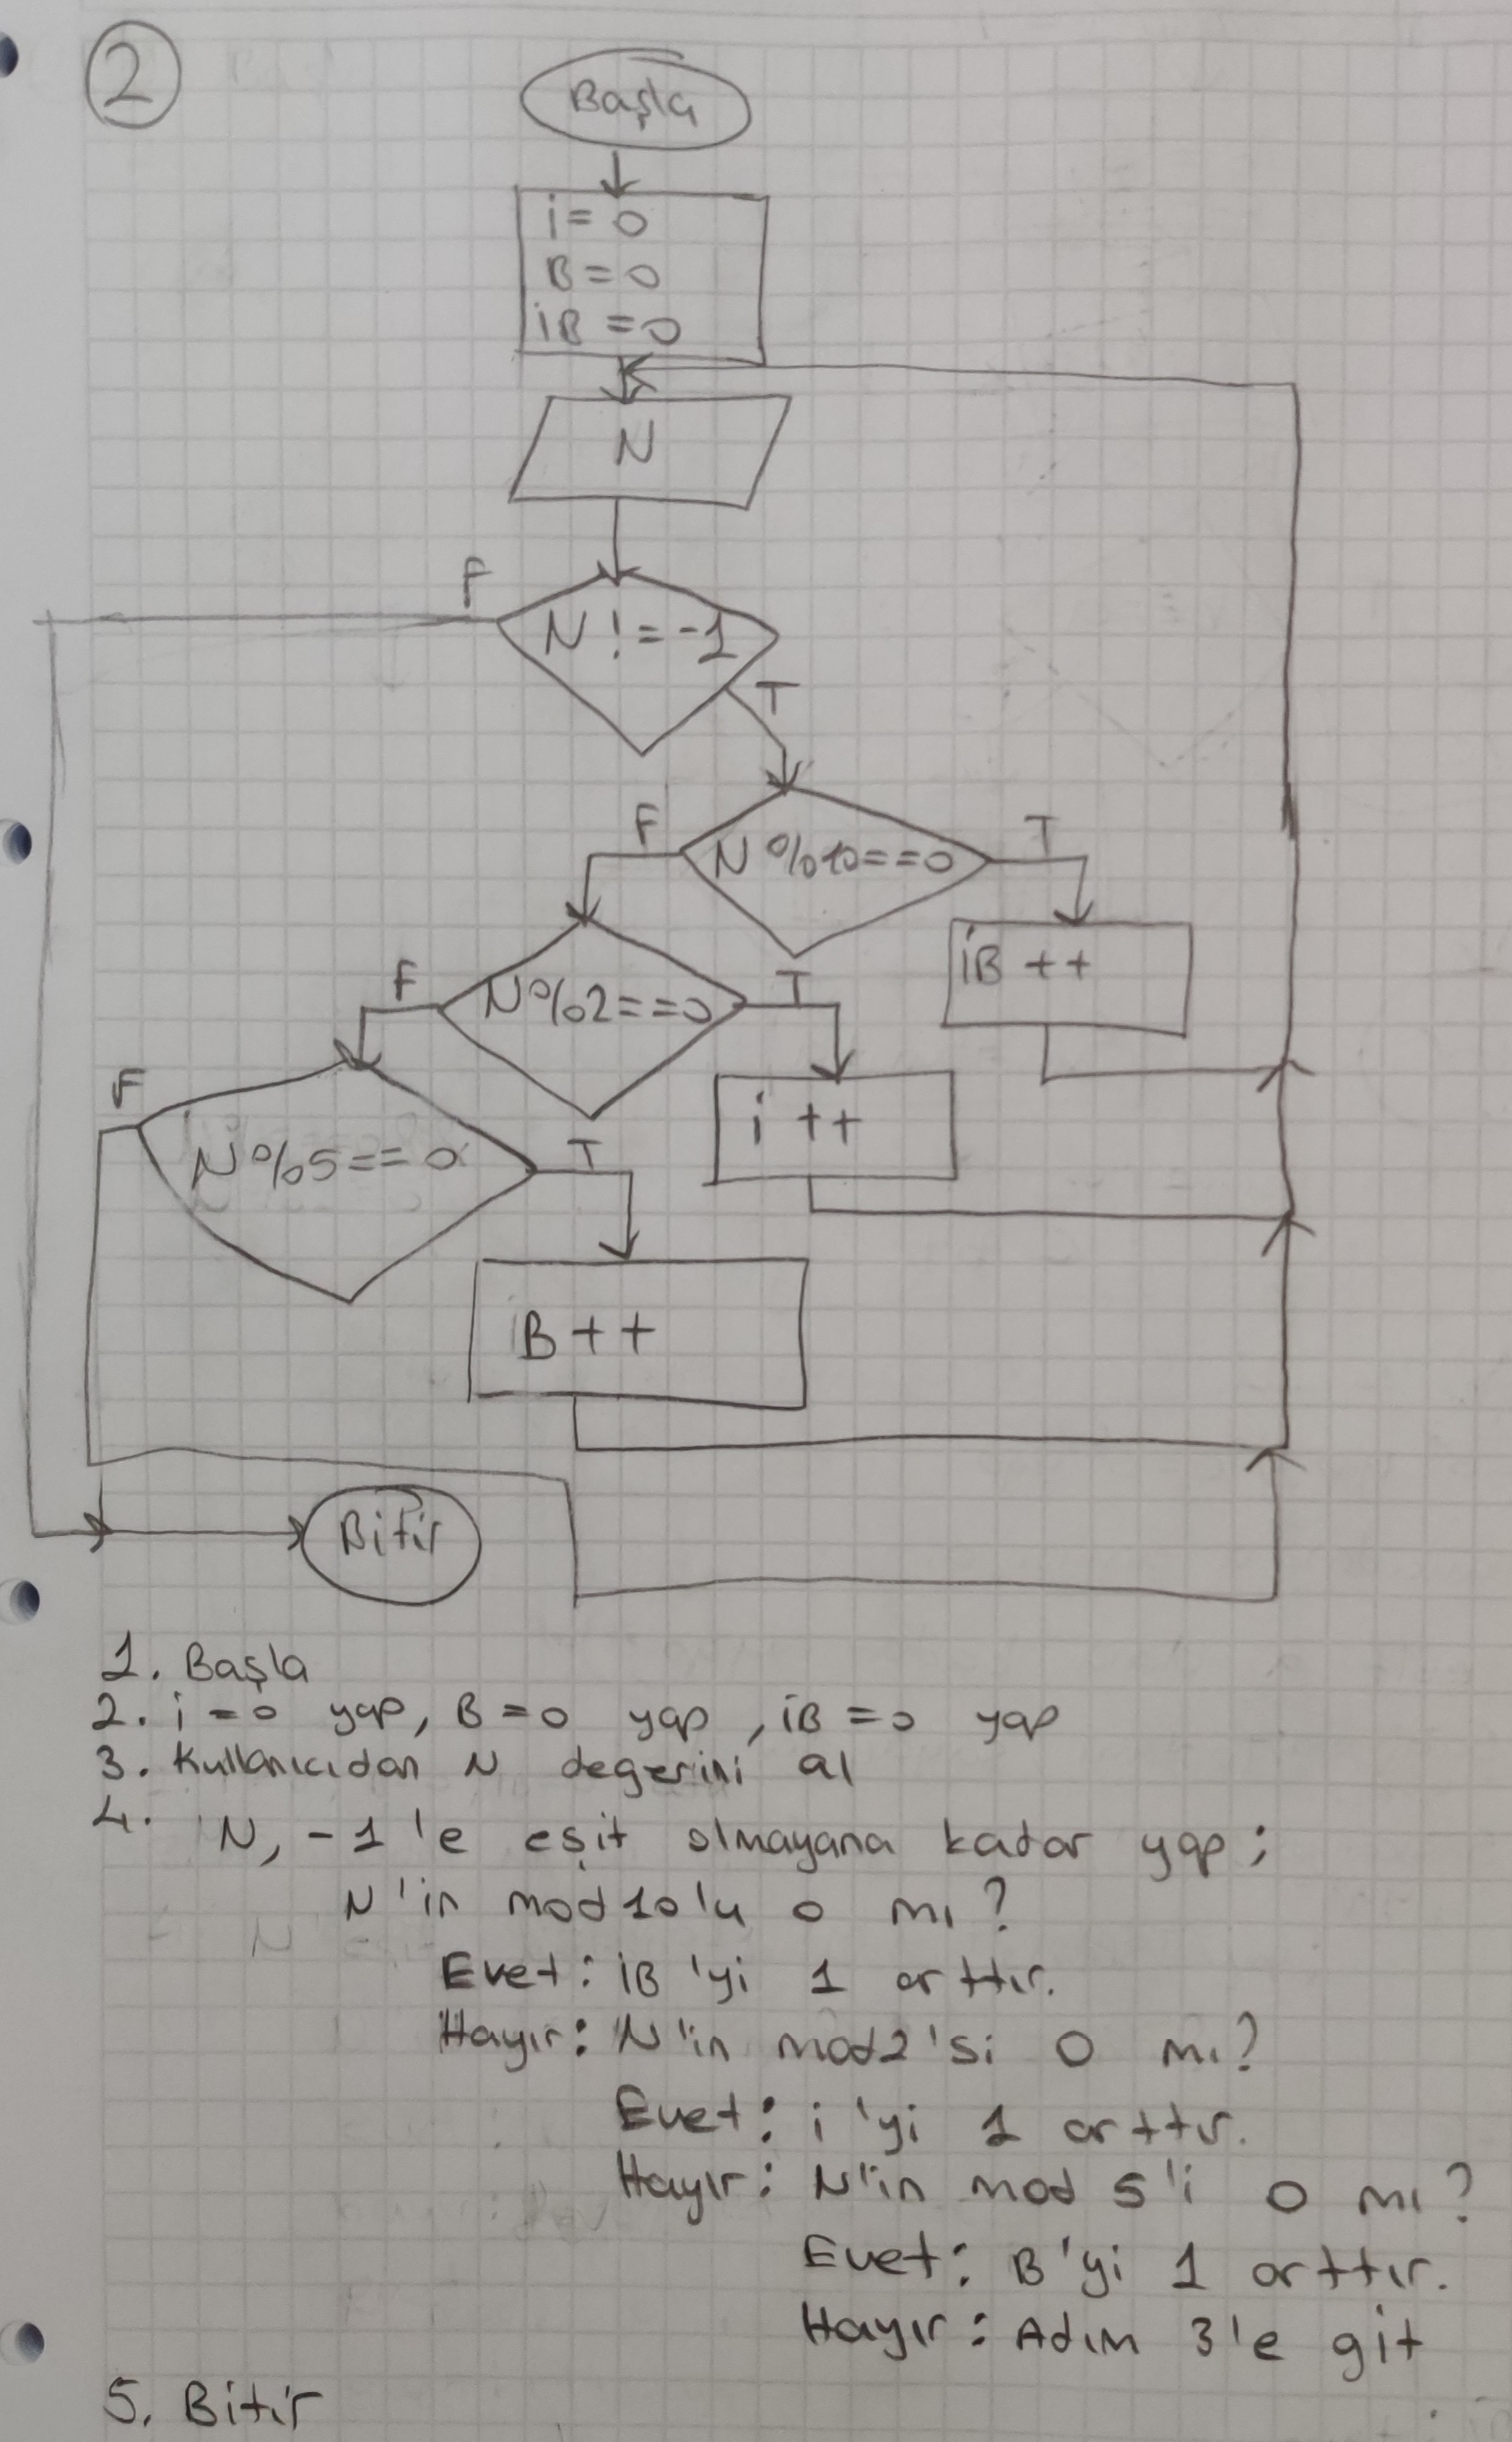 2
Başla
i = 0
B = 0
iB = 0
N
F
N != -1
T
F
N%10==0
T
iB ++
F
N%2==0
T
i ++
F
N%5==0
T
B++
Bitir
1. Başla
2. i=0 yap, B=0 yap, iB=0 yap
3. Kullanıcıdan N değerini al
4. N, -1'e eşit olmayana kadar yap;
N'in mod10'u 0 mı?
Evet: iB'yi 1 arttır.
Hayır: N'in mod2'si 0 mı?
Evet: i'yi 1 arttır.
Hayır: N'in mod 5'i 0 mı?
Evet: B'yi 1 arttır.
Hayır: Adım 3'e git
5. Bitir